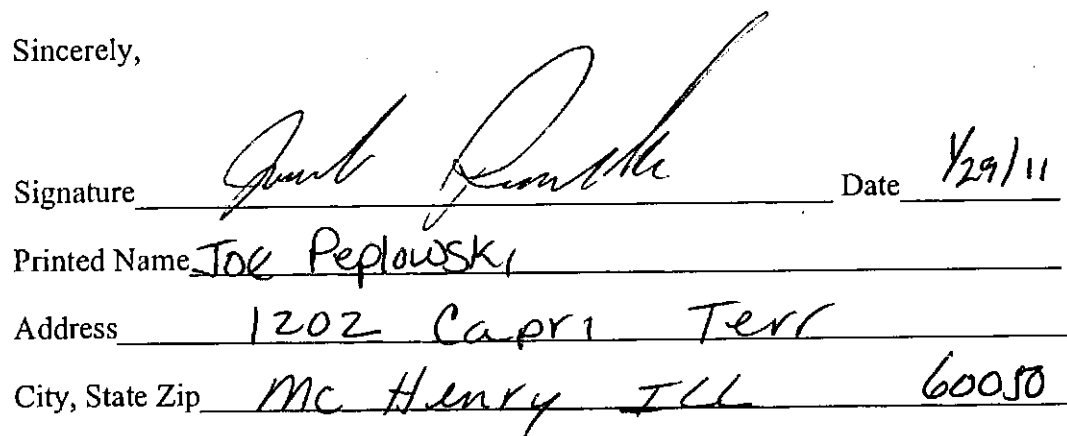 Sincerely,
Signature Date 1/29/11
Printed Name Joe Peplowski
Address 1202 Capri Terr
City, State Zip Mc Henry ILL 60050